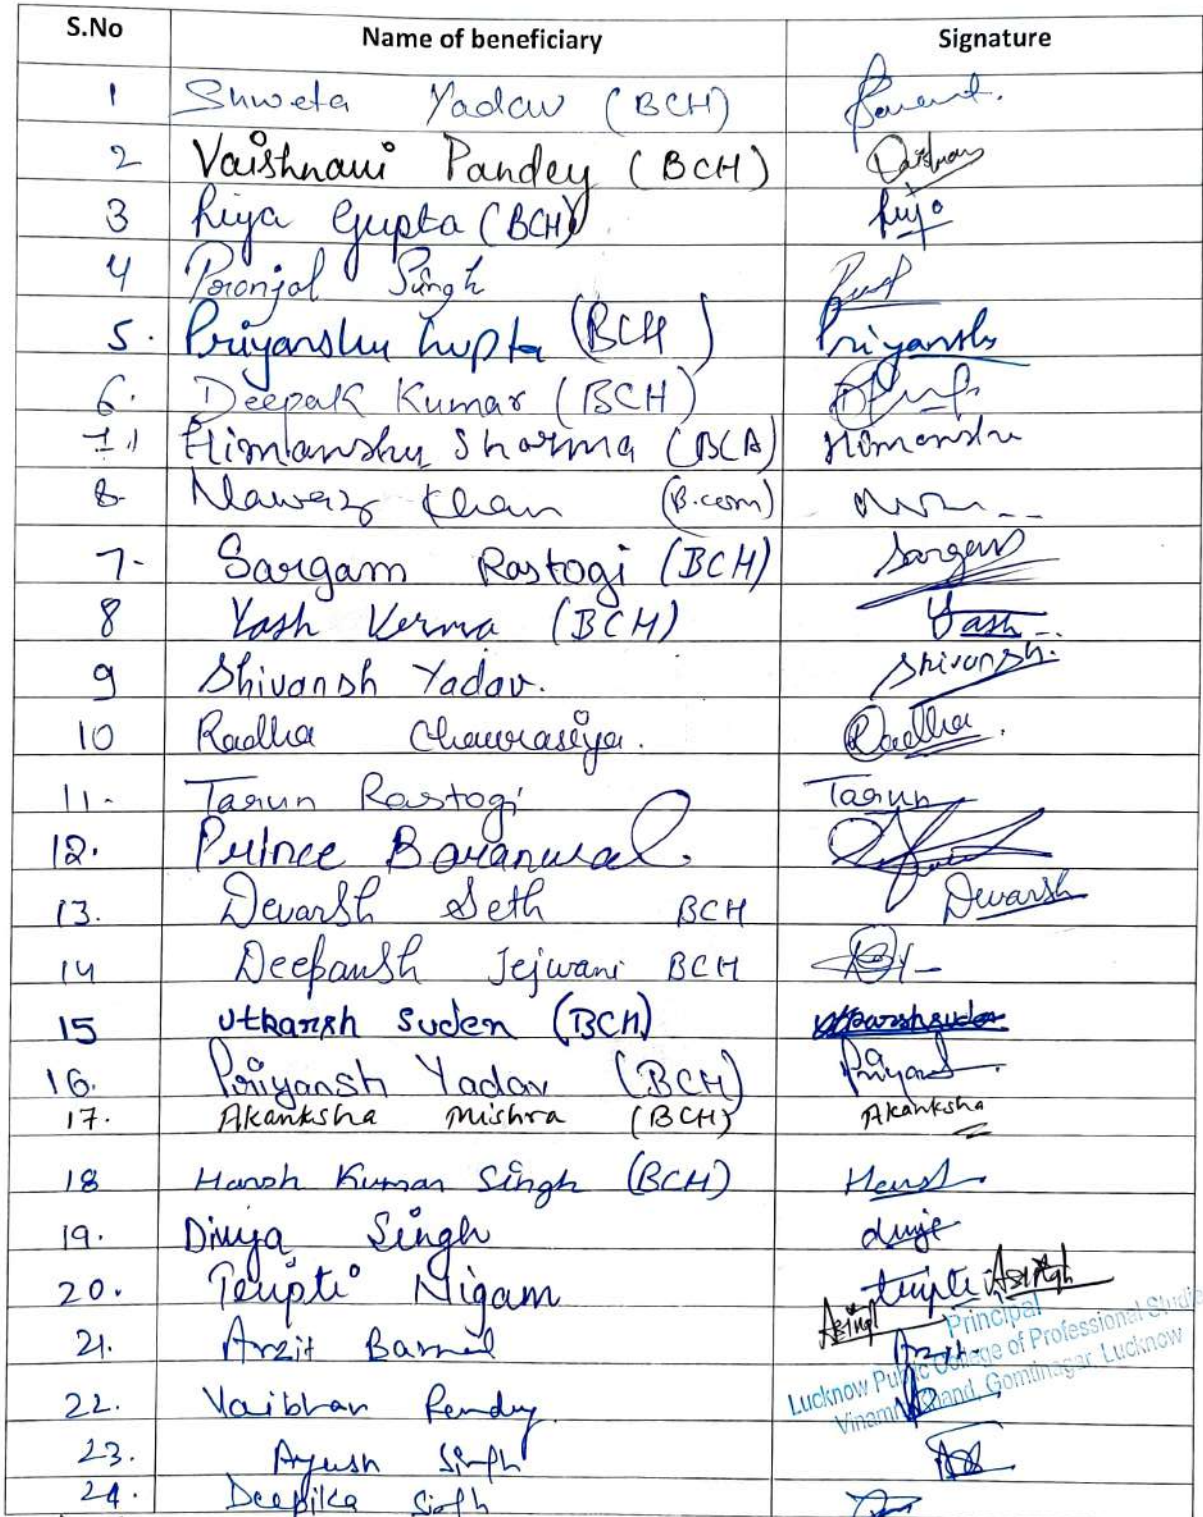 S.No Name of beneficiary Signature
1 Shweta Yadav (BCH)
2 Vaishnavi Pandey (BCH) Vaishnavi
3 Riya Gupta (BCH) Riya
4 Pronjol Singh
5. Priyanshu Gupta (BCH) Priyanshu
6. Deepak Kumar (BCH)
7. Himanshu Sharma (BCA) Himanshu
8. Nawaz Khan (B.com)
7. Sargam Rastogi (BCH) Sargam
8 Yash Verma (BCH) Yash
9 Shivansh Yadav. Shivansh.
10 Radha Chaurasiya. Radha.
11. Tarun Rastogi Tarun
12. Prince Baranwal.
13. Devarsh Seth BCH Devarsh
14 Deepansh Jejwani BCH
15 Utkarsh Suden (BCH) Utkarsh Suden
16. Priyansh Yadav (BCH) Priyansh
17. Akanksha Mishra (BCH) Akanksha
18 Harsh Kumar Singh (BCH) Harsh
19. Divya Singh divya
20. Tripti Nigam tripti ASingh
ASingh
Principal
21. Arzit Arzit
Lucknow Public College of Professional Studies
Vinamra Khand, Gomtinagar, Lucknow
22. Vaibhav Pandey
23. Ayush Singh
24. Deepika Singh